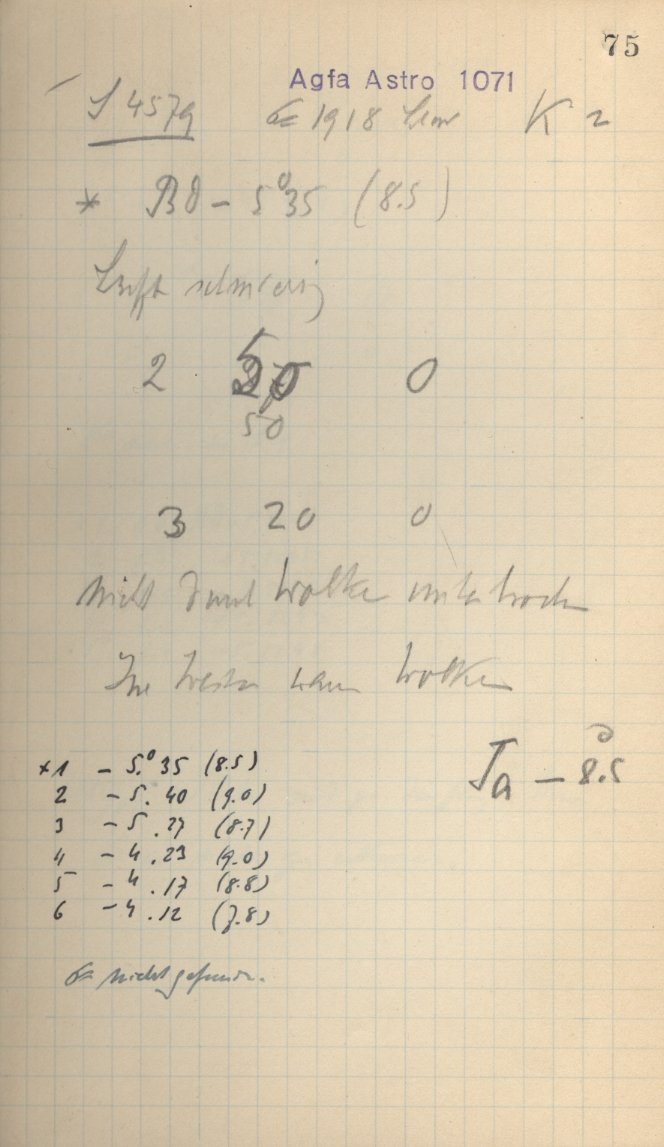 75
Agfa Astro 1071
S 4579 1918 K 2
* BD - 5°35 (8.5)
Luft schmierig
2 50 0
50
3 20 0
Nicht durch Wolke unterbroch
Im Westen waren Wolken
Ta - 8.5
*1 - 5.°35 (8.5)
2 - 5. 40 (9.0)
3 - 5. 27 (8.7)
4 - 4. 23 (9.0)
5 - 4. 17 (8.8)
6 - 4. 12 (7.8)
nicht gefunden.